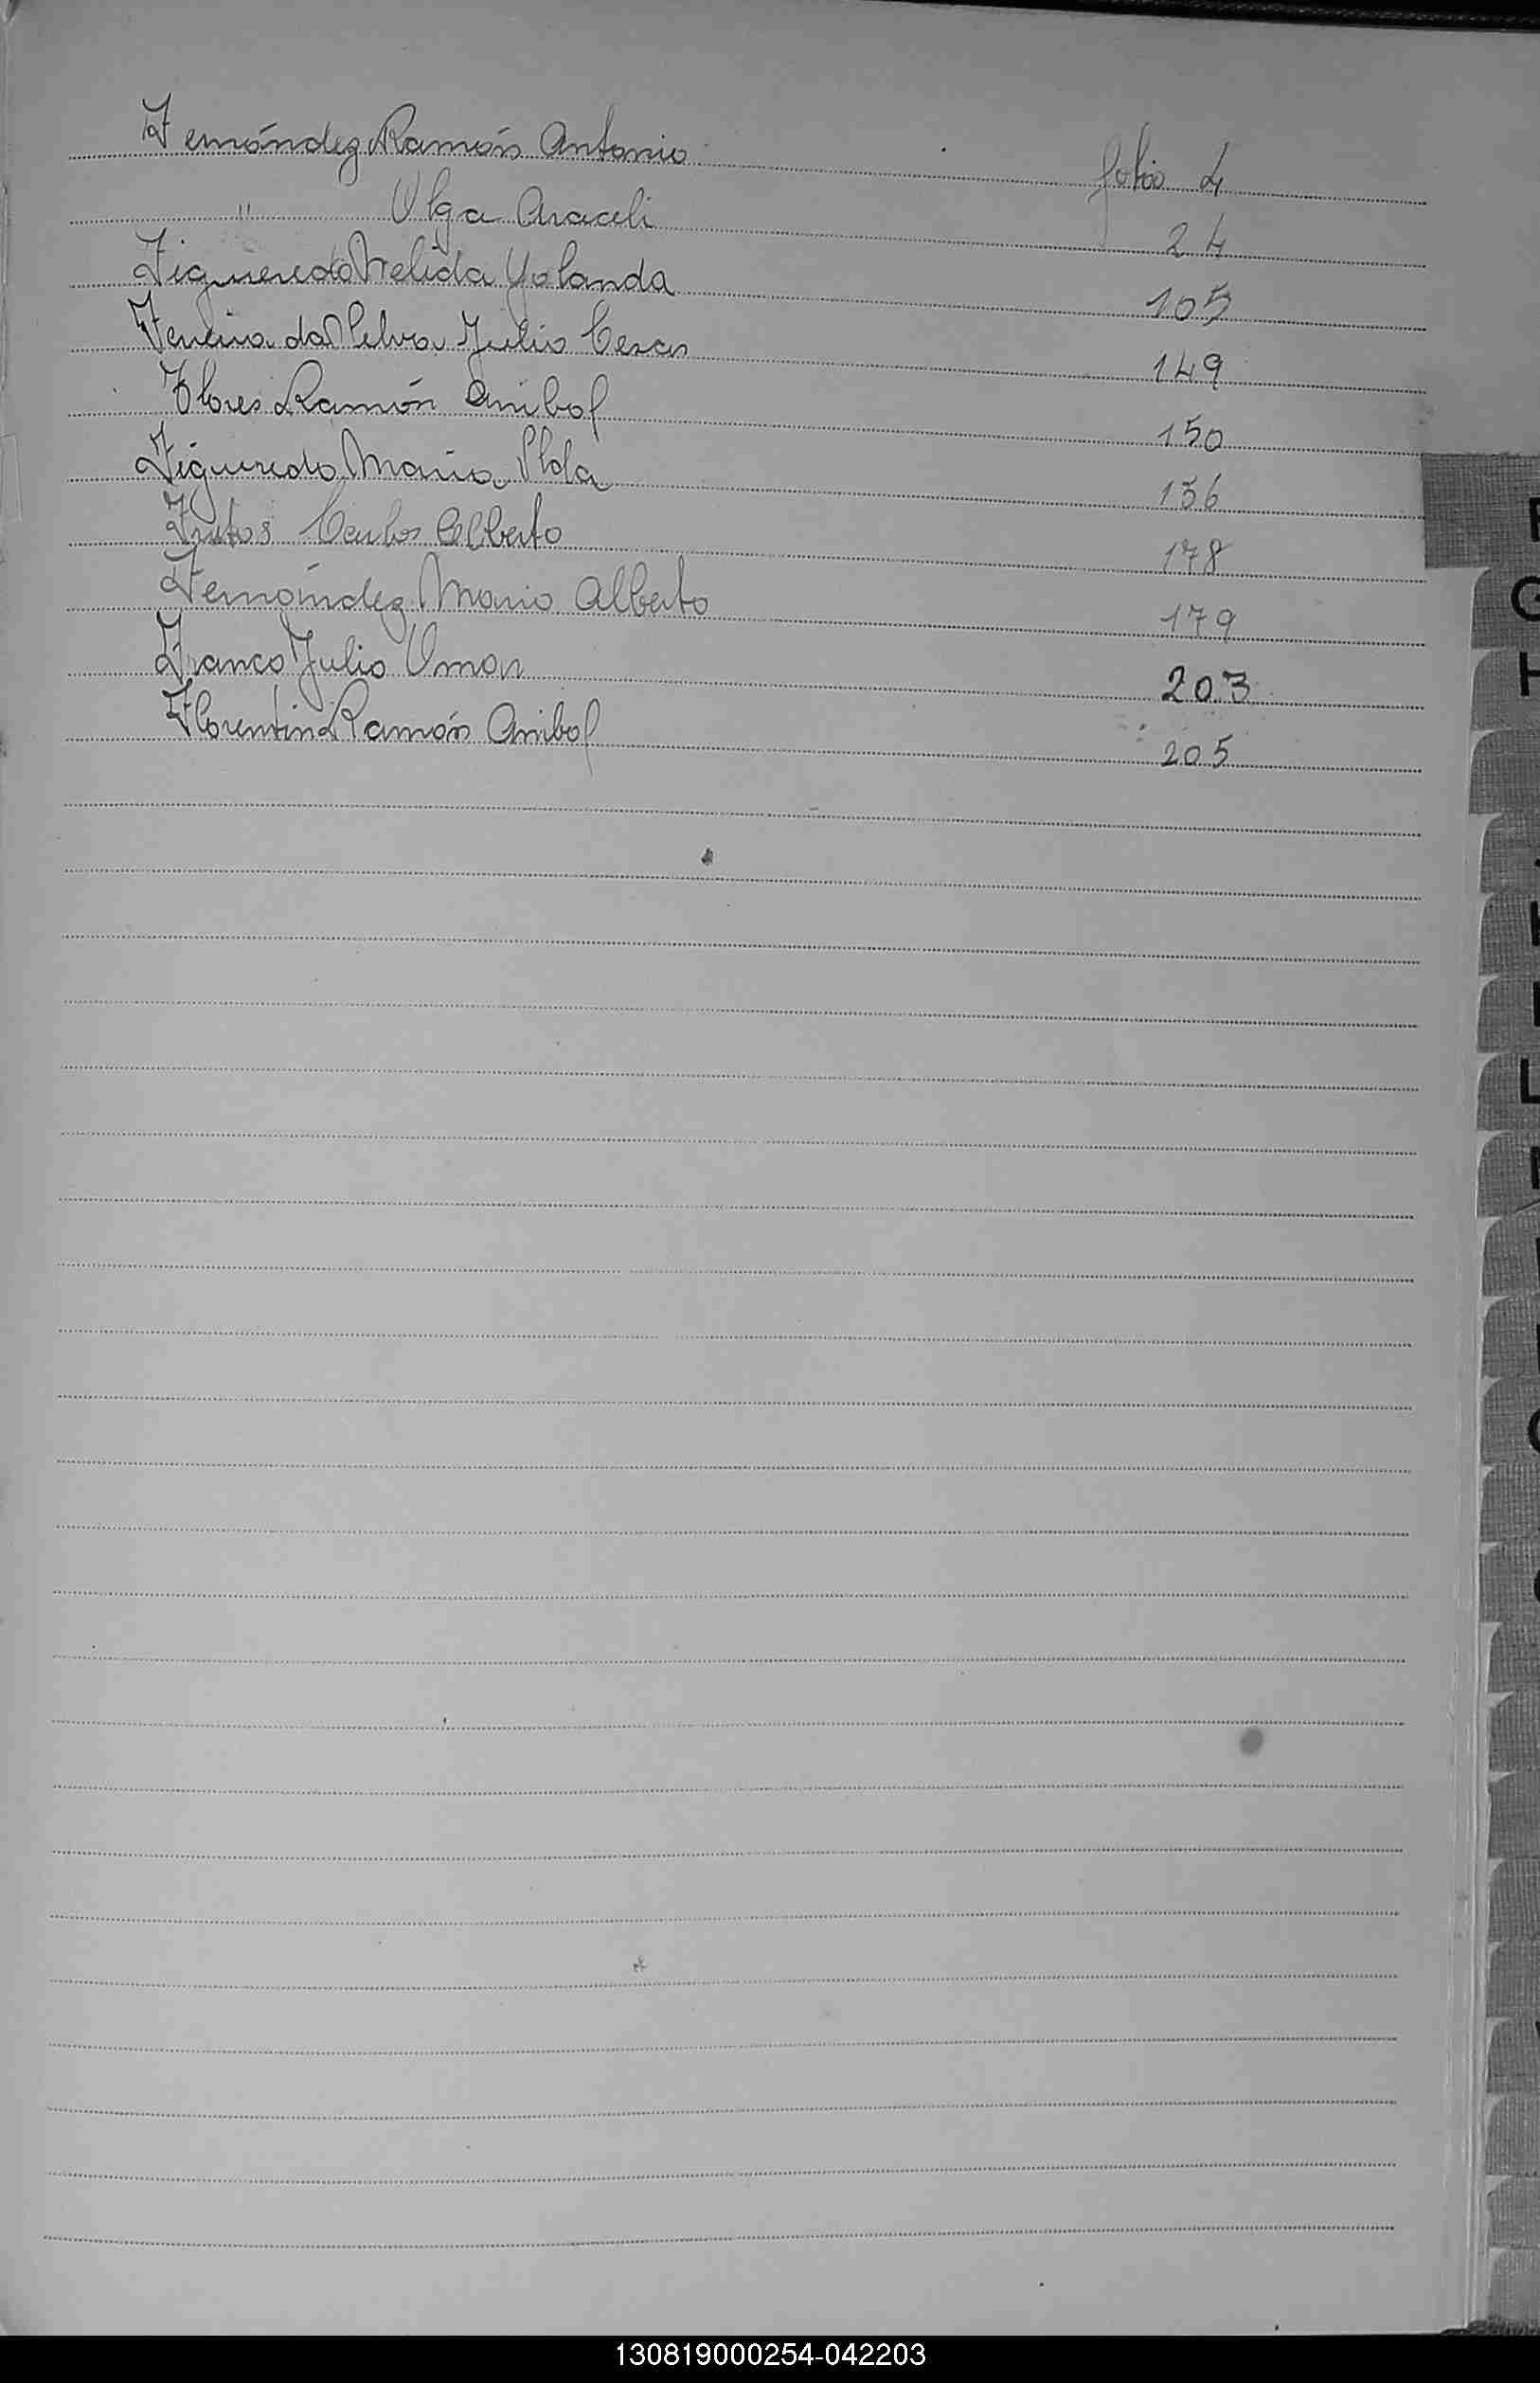 Fernández Ramón Antonio folio 4
" Olga Araceli 24
Figueredo Nelida Yolanda 105
Ferreira da Silva Julio Cesar 149
Flores Ramón Anibal 150
Figueredo María Ilda 156
Frutos Carlos Alberto 178
Fernández Mario Alberto 179
Franco Julio Omar 203
Florentin Ramón Anibal 205
G
H
L
130819000254-042203